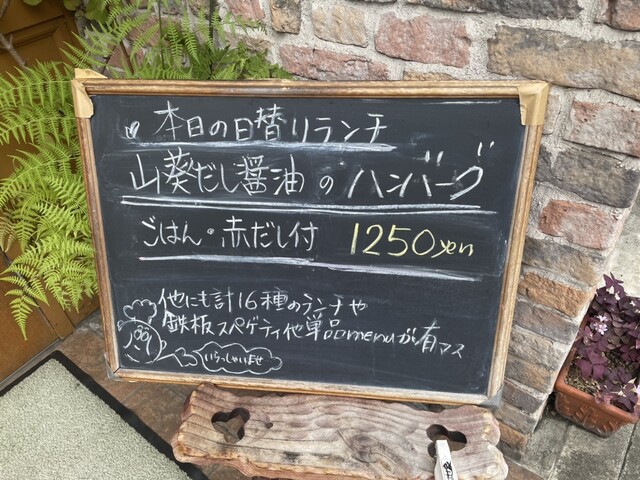 本日の日替りランチ
山葵だし醤油のハンバーグ
ごはん・赤だし付 1250yen
他にも計16種のランチや
鉄板スペゲティ他単品menuが有マス
いらっしゃいませ